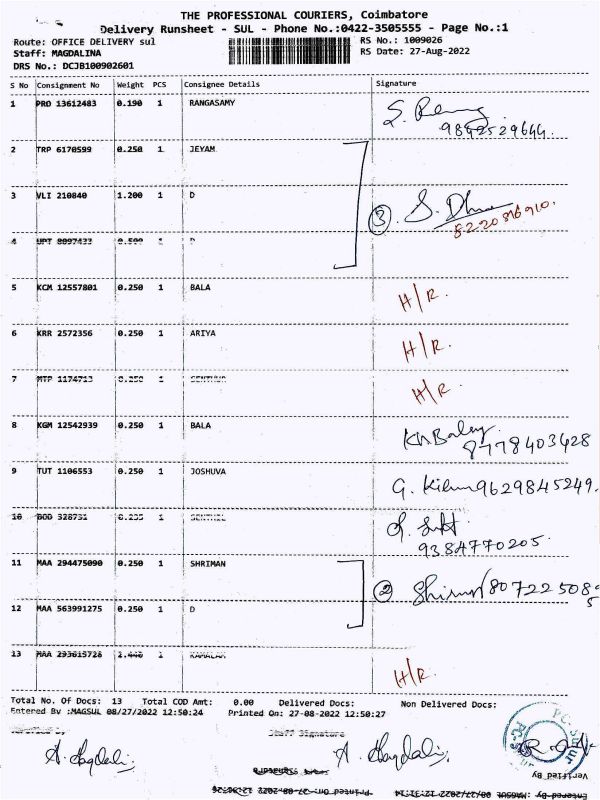 THE PROFESSIONAL COURIERS, Coimbatore
Delivery Runsheet - SUL - Phone No.:0422-3505555 - Page No.:1
Route: OFFICE DELIVERY sul
RS No.: 1009026
Staff: MAGDALINA
RS Date: 27-Aug-2022
DRS No.: DCJB100902601
S No Consignment No Weight PCS Consignee Details Signature
1 PRO 13612483 0.190 1 RANGASAMY
9842529644.
2 TRP 6170599 0.250 1 JEYAM
3 VLI 210840 1.200 1 D
3. S. Dh
8220816910.
4 UPT 8097433 0.500 1 D
5 KCM 12557801 0.250 1 BALA H/R.
6 KRR 2572356 0.250 1 ARIYA H/R.
7 MTP 1174713 0.250 1 H/R.
8 KGM 12542939 0.250 1 BALA
8778403428
9 TUT 1106553 0.250 1 JOSHUVA G. 9629845249.
10 BOD 328731 0.235 1
9384770205.
11 MAA 294475090 0.250 1 SHRIMAN
2 Shriman 807225089
5
12 MAA 563991275 0.250 1 D
13 MAA 293615728 1 KAMALAK H/R.
Total No. Of Docs: 13 Total COD Amt: 0.00 Delivered Docs: Non Delivered Docs:
Entered By :MAGSUL 08/27/2022 12:50:24 Printed On: 27-08-2022 12:50:27
Staff Signature
A. Magdali A. Magdali
Verified By